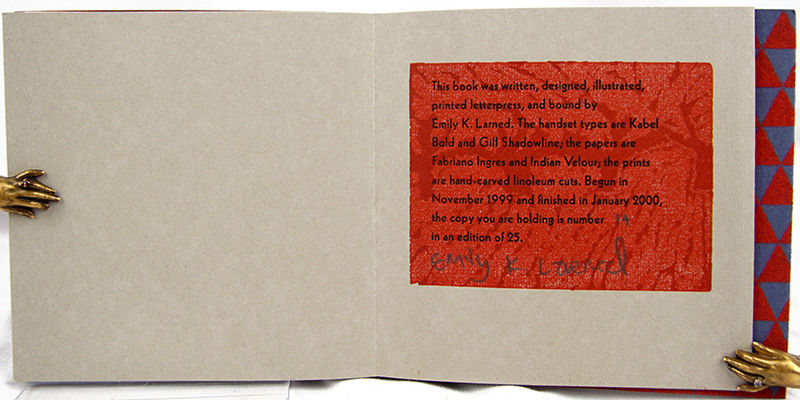 This book was written, designed, illustrated,
printed letterpress, and bound by
Emily K. Larned. The handset types are Kabel
Bold and Gill Shadowline; the papers are
Fabriano Ingres and Indian Velour; the prints
are hand-carved linoleum cuts. Begun in
November 1999 and finished in January 2000,
the copy you are holding is number 14
in an edition of 25.
Emily K Larned